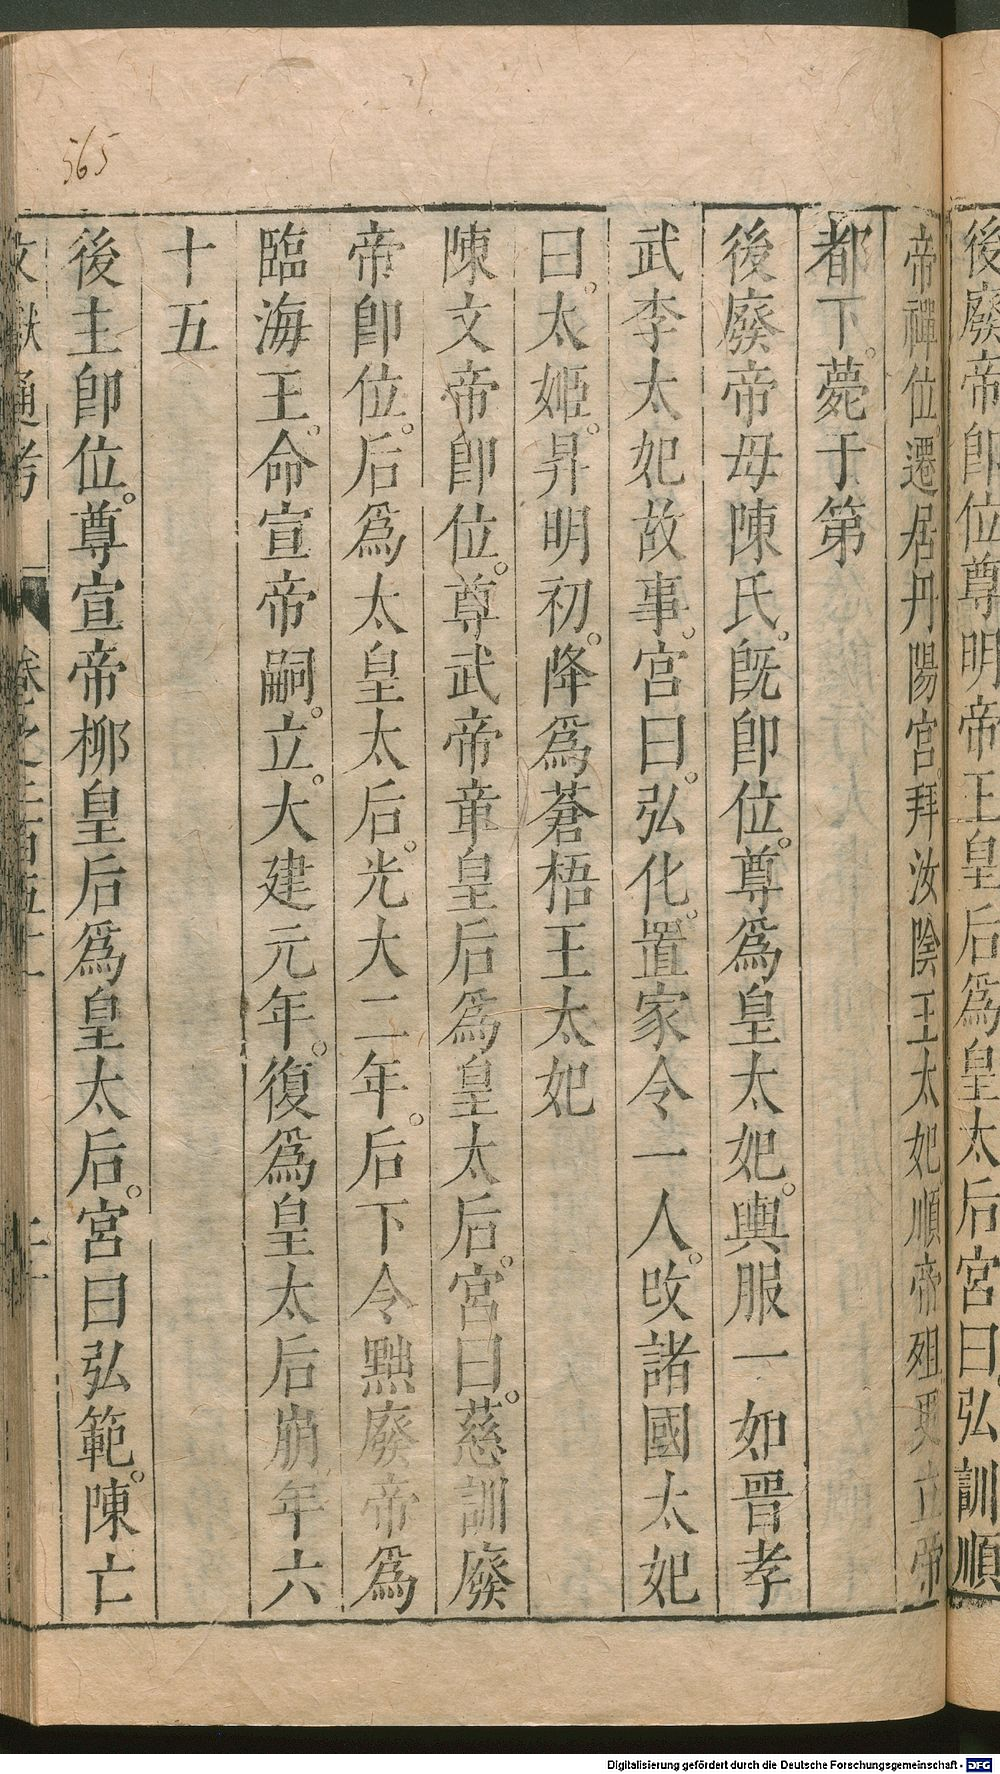 565
後廢帝卽位尊明帝王皇后爲皇太后宮曰弘訓順
帝禪位。遷居丹陽宮。拜汝陰王太妃順帝殂更立帝
都下。薨于第
後廢帝母陳氏。旣卽位。尊爲皇太妃。輿服一如晉孝
武李太妃故事。宮曰。弘化。置家令一人。改諸國太妃
曰。太姬。昇明初。降爲蒼梧王太妃
陳文帝卽位。尊武帝章皇后爲皇太后。宮曰。慈訓廢
帝卽位。后爲太皇太后。光大二年。后下令黜廢帝爲
臨海王。命宣帝嗣。立。大建元年。復爲皇太后崩年六
十五
後主卽位。尊宣帝柳皇后爲皇太后。宮曰弘範。陳亡
文獻通考
Digitalisierung gefördert durch die Deutsche Forschungsgemeinschaft - DFG